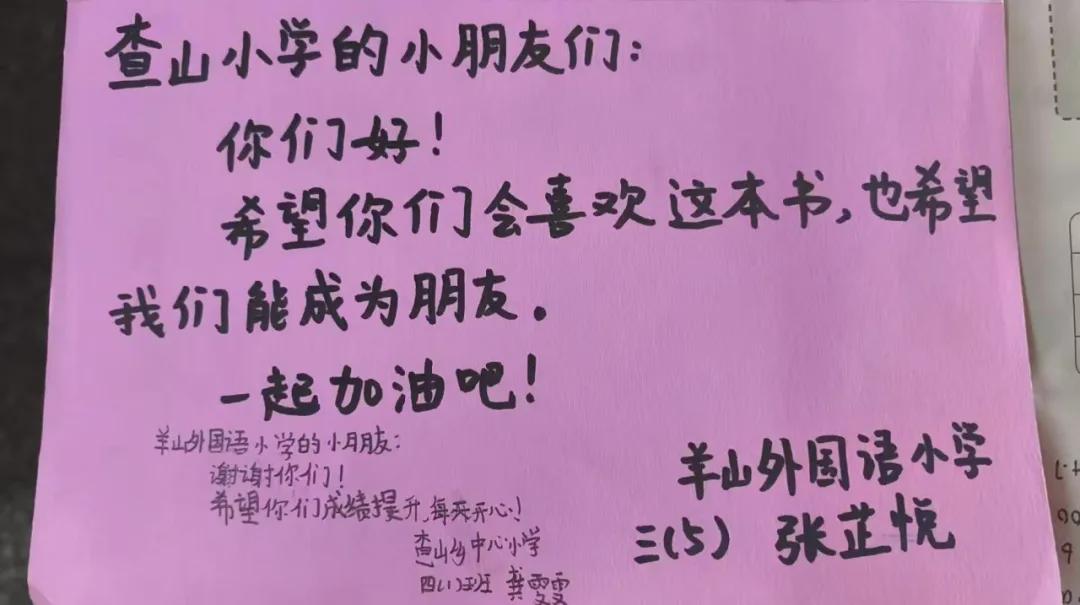 查山小学的小朋友们：
你们好！
希望你们会喜欢这本书，也希望
我们能成为朋友。
一起加油吧！
羊山外国语小学
三（5） 张芷悦
羊山外国语小学的小朋友：
谢谢你们！
希望你们成绩提升，每天开心！
查山乡中心小学
四（1）班 龚雯雯